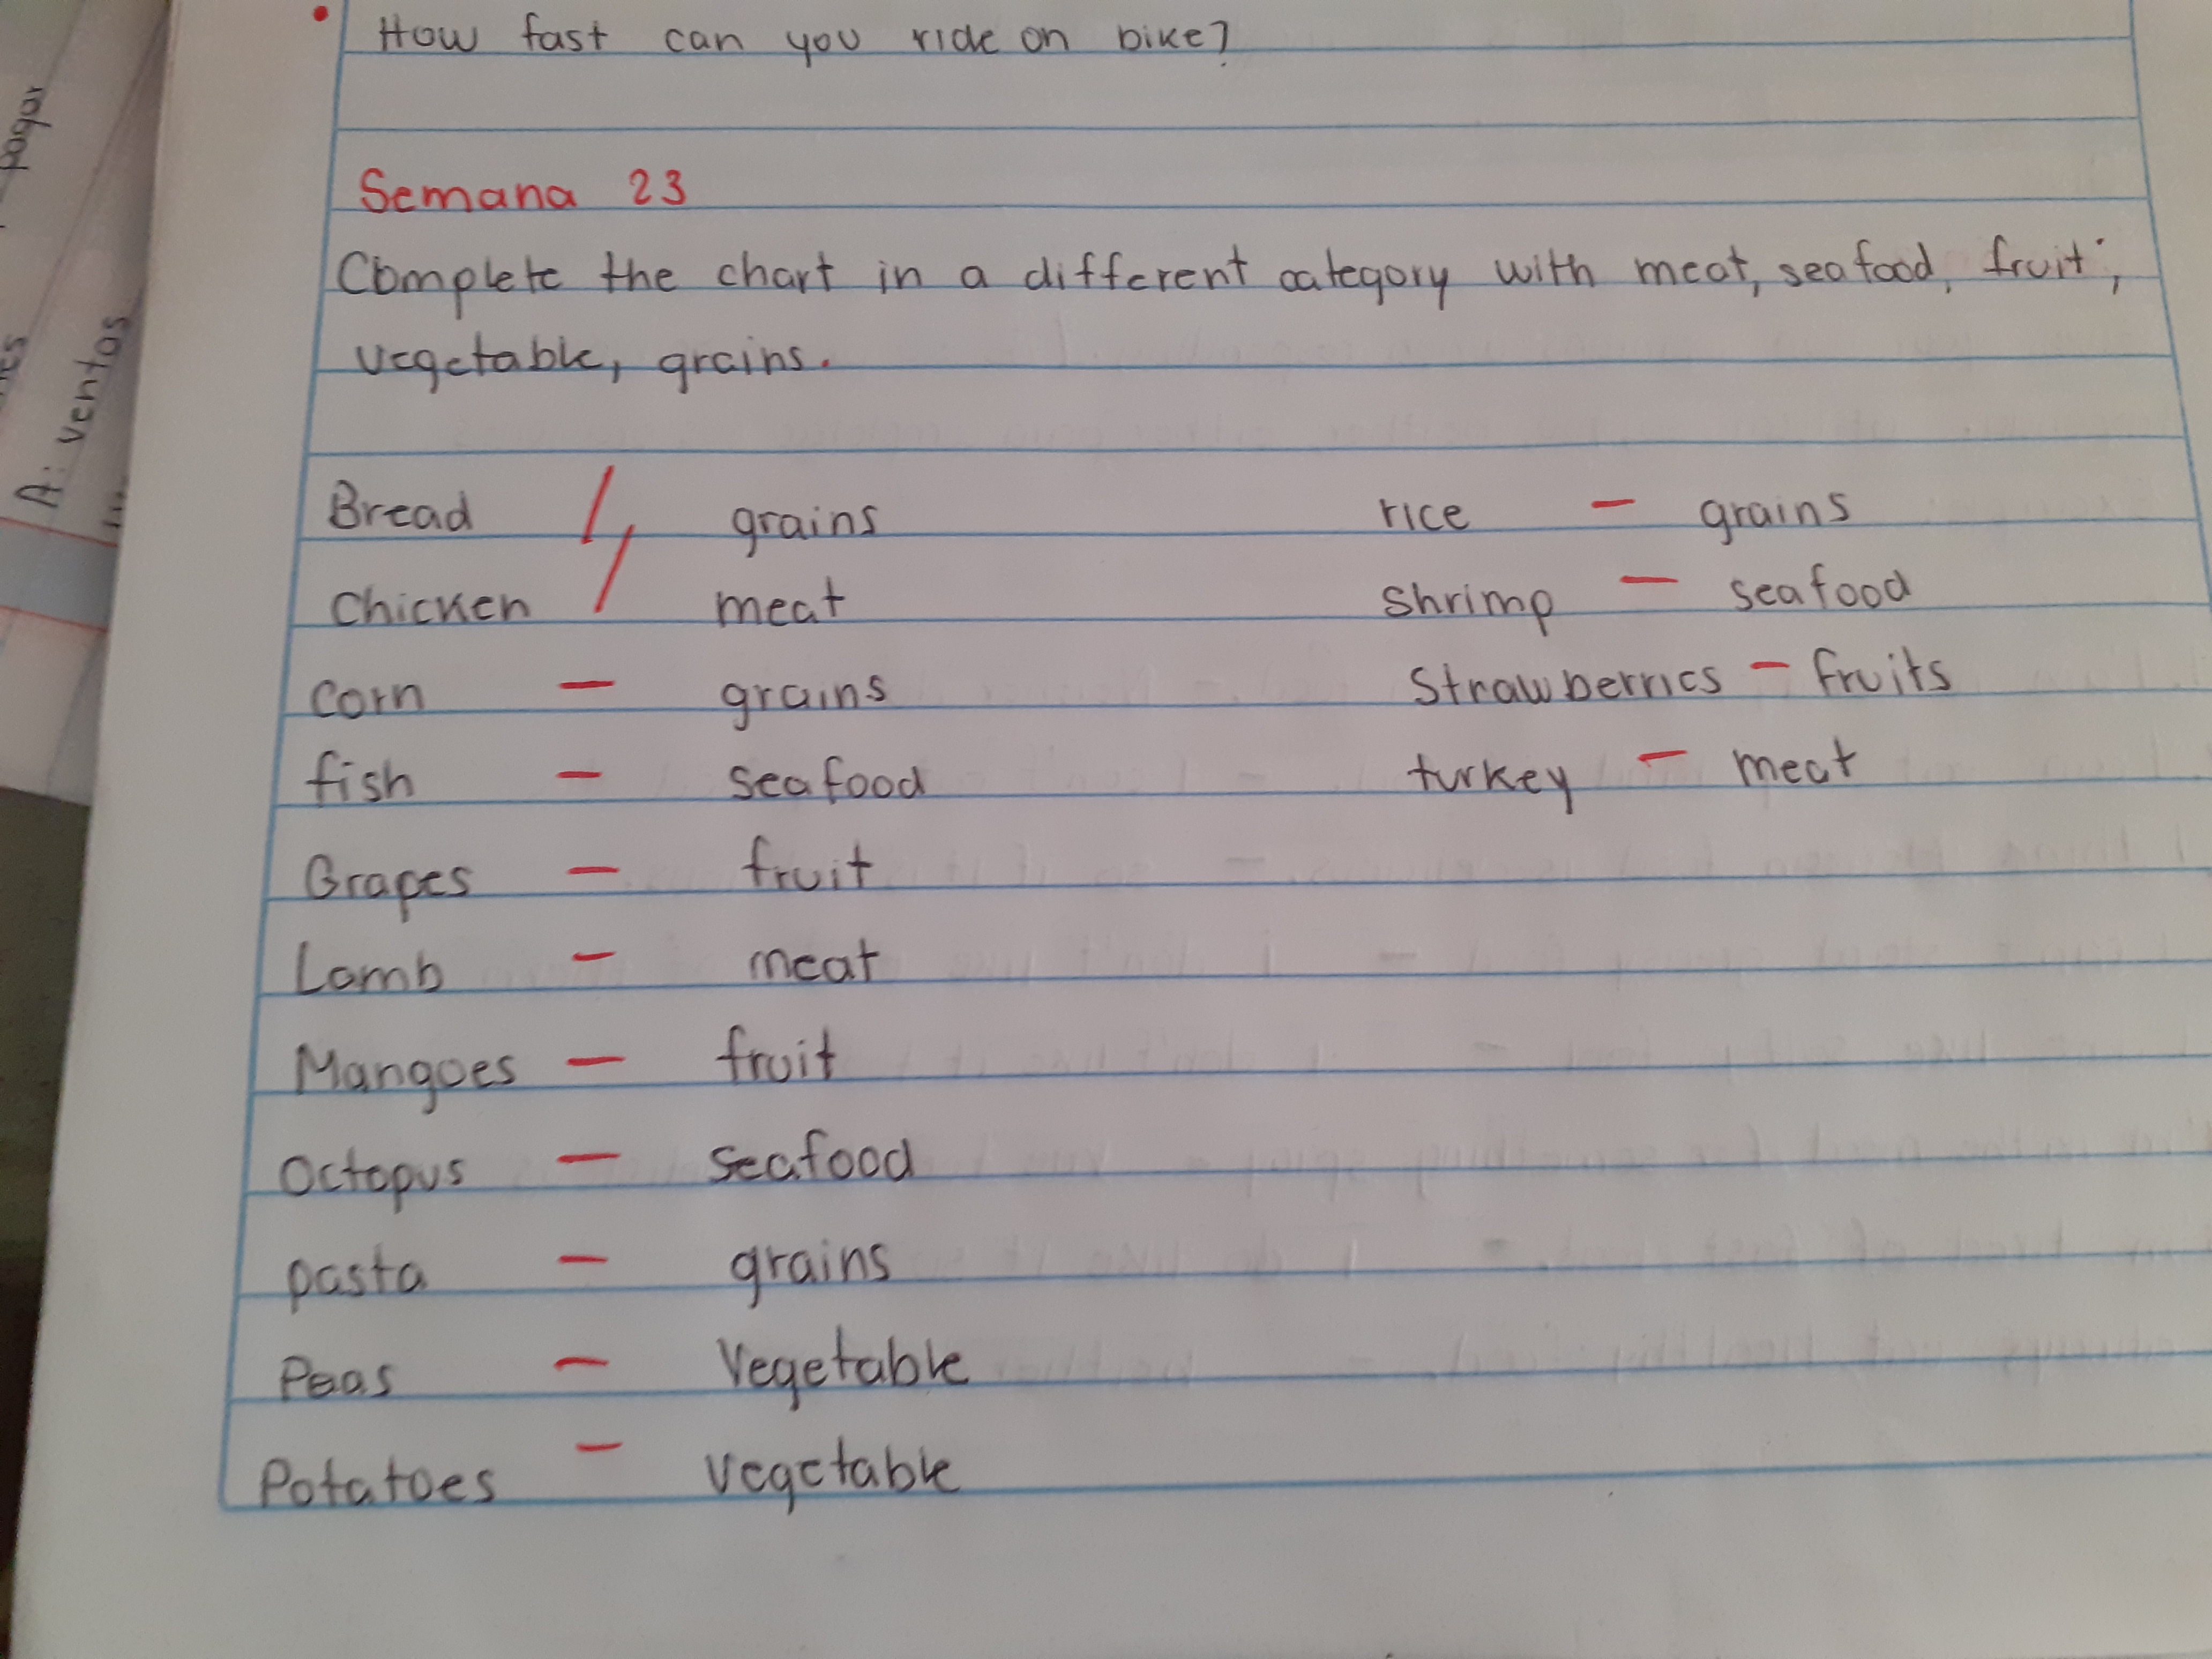 How fast can you ride on bike?
Semana 23
Complete the chart in a different category with meat, seafood, fruit,
vegetable, grains.
Bread grains
Chicken meat
corn - grains
fish - seafood
Grapes - fruit
Lamb - meat
Mangoes - fruit
Octopus - seafood
pasta - grains
Peas - Vegetable
Potatoes - vegetable
rice - grains
shrimp - seafood
Strawberries - fruits
turkey - meat
pagar
A: ventas